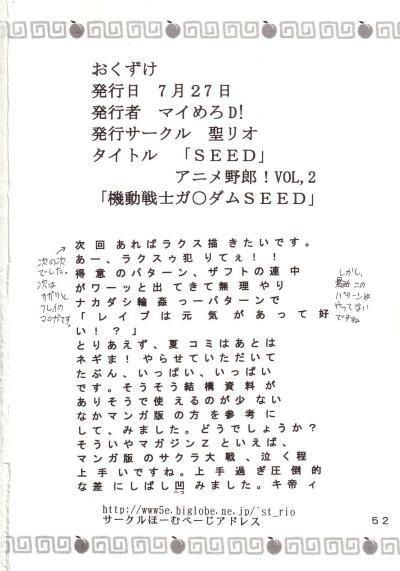 おくずけ
発行日 7月27日
発行者 マイめろD!
発行サークル 聖リオ
タイトル 「SEED」
アニメ野郎!VOL,2
「機動戦士ガ○ダムSEED」
次回あればラクス描きたいです。
あー、ラクスゥ犯りてぇ!!
得意のパターン、ザフトの連中
がワーッと出てきて無理やり
ナカダシ輪姦っーパターンで
「レイプは元気があって好
い!?」
とりあえず、夏コミはあとは
ネギま!やらせていただいて
たぶん、いっぱい、いっぱい
です。そうそう結構資料が
ありそうで使えるのが少ない
なかマンガ版の方を参考に
して、みました。どうでしょうか?
そういやマガジンZといえば、
マンガ版のサクラ大戦、泣く程
上手いですね。上手過ぎ圧倒的
な差にしばし凹みました。キ帝ィ
ヘコ
次の次
でした。
次は
カガリと
フレイの
しかし、
このパターンは
やってない
ですね
http://www5e.biglobe.ne.jp/~st_rio
サークルほーむぺーじアドレス
52